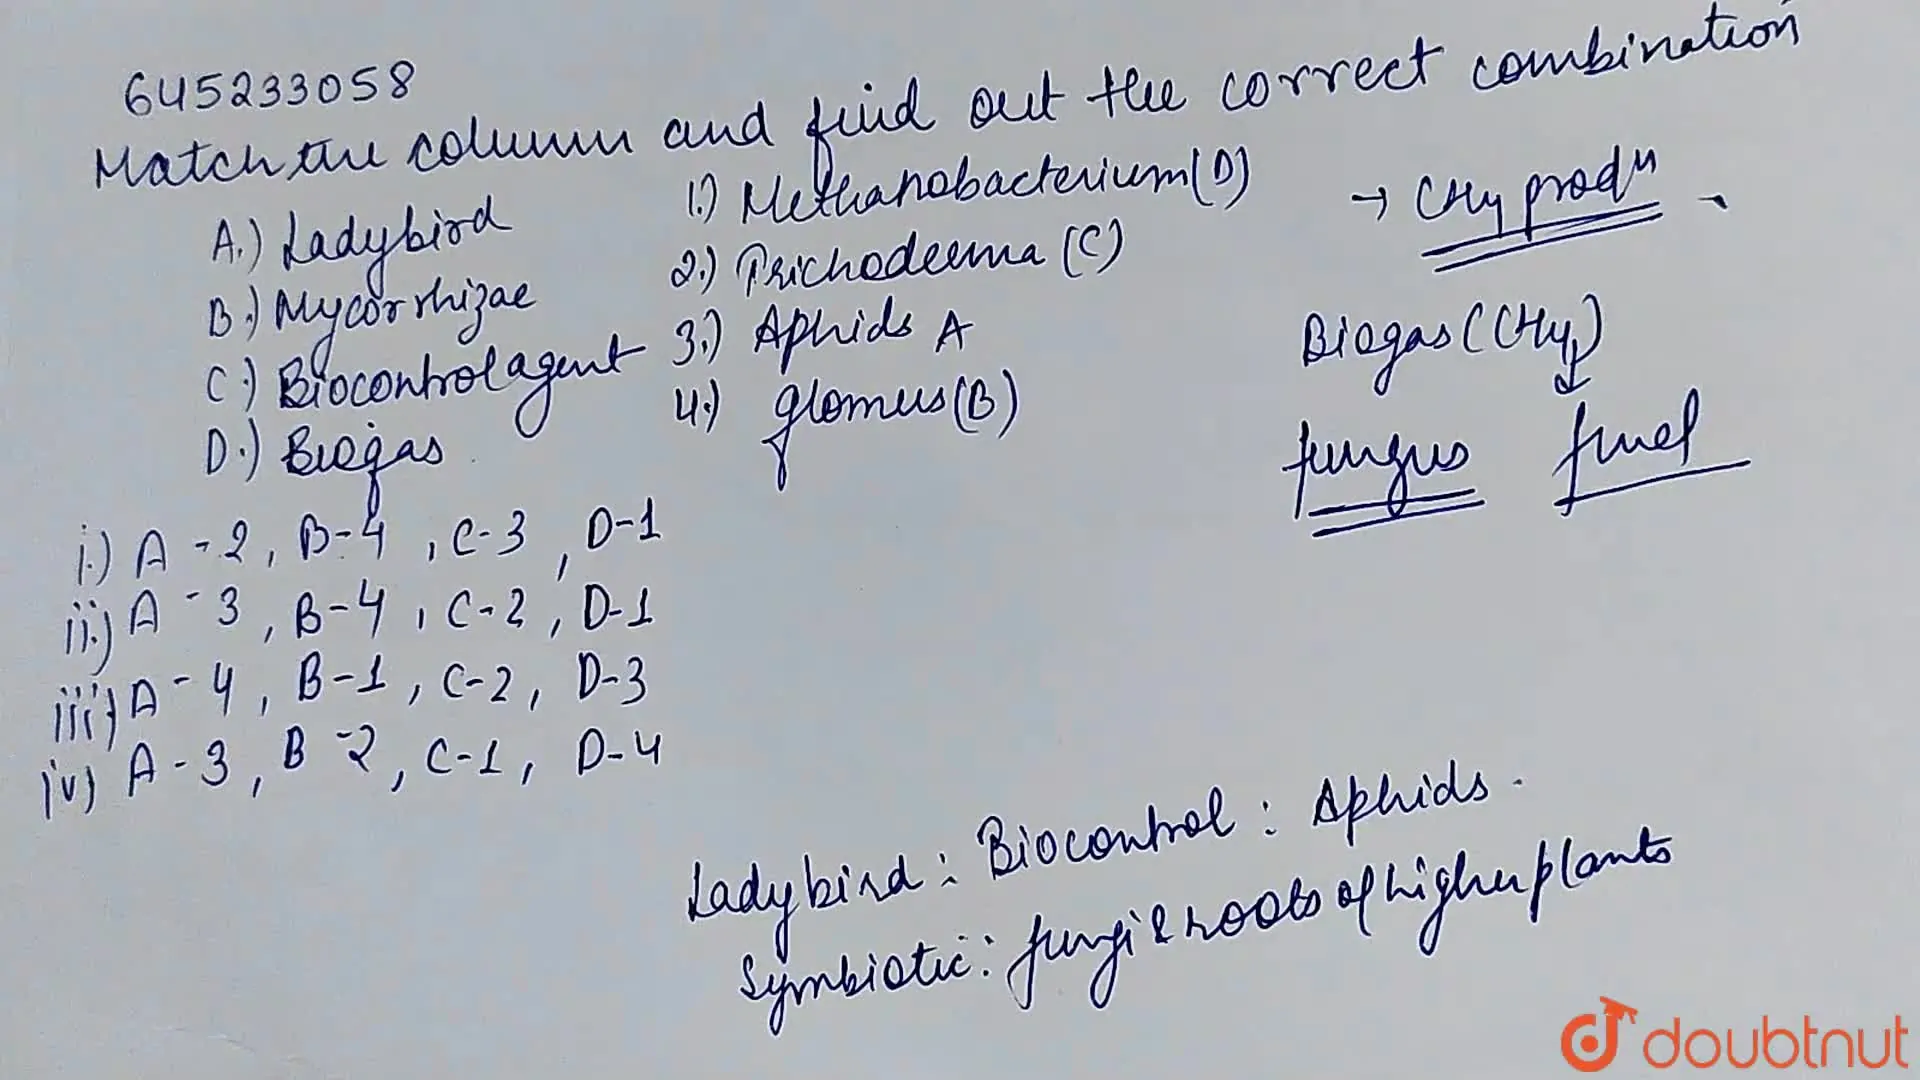 645233058
Match the column and find out the correct combination
A.) Ladybird
1.) Methanobacterium (D)
→ CH4 prodn
B.) Mycorrhizae
2.) Trichoderma (C)
C.) Biocontrol agent
3.) Aphids A
Biogas (CH4)
D.) Biogas
4.) glomus (B)
fungus
fuel
i.) A-2, B-4, C-3, D-1
ii.) A-3, B-4, C-2, D-1
iii) A-4, B-1, C-2, D-3
iv) A-3, B-2, C-1, D-4
Ladybird : Biocontrol : Aphids.
Symbiotic : fungi & roots of higher plants
doubtnut